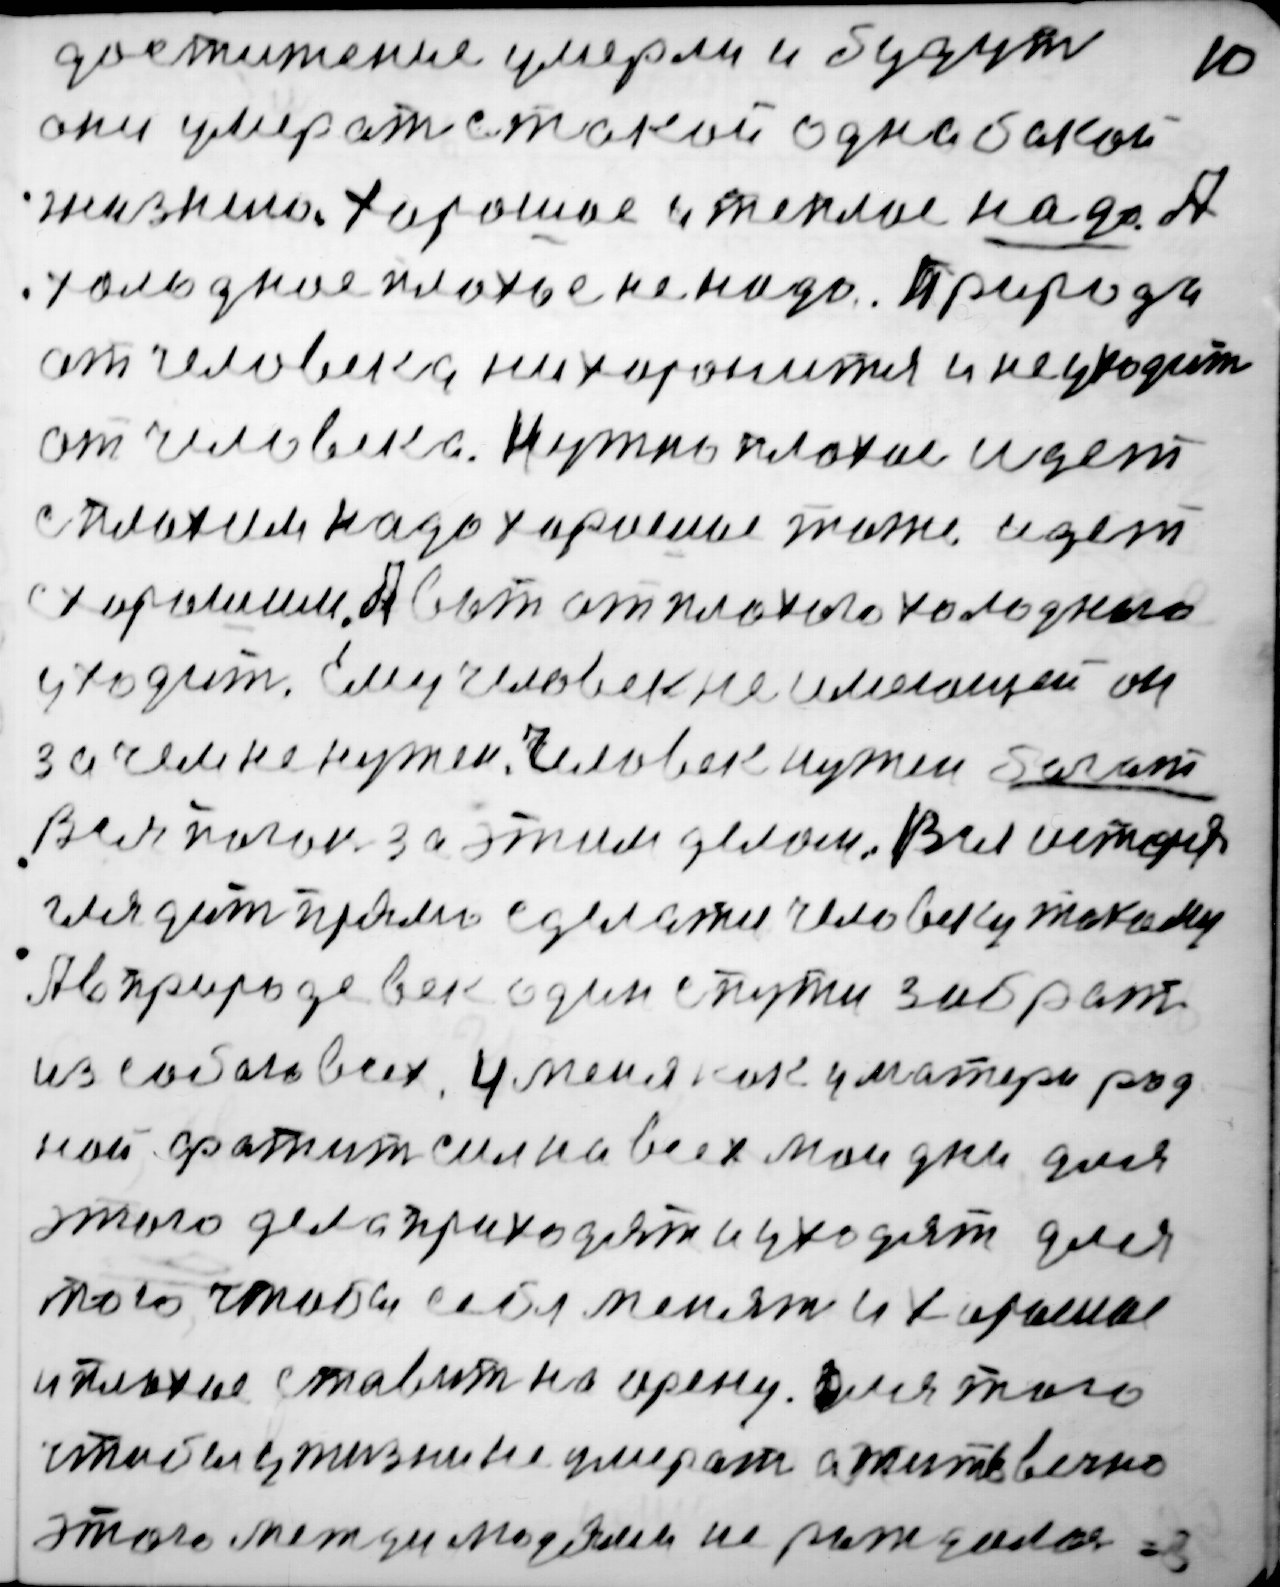 достижение умерли и будут 10
они умерат с такой однабакой
жизнию. Хорошое и теплое надо. А
хольодное плохое не надо. Природа
от человека нихоронится и не уходит
от человека. Нужно плохое идет
с плохим надо хорошое тоже идет
с хорошим. А вот от плохого холодного
уходит. Ему человек не имеющей он
зачем не нужен. Человек нужен богат
Вся погон за этим делом. Вся история
глядит прямо сделати человеку такому
А в природе век один с пути забрат
из собою всех. У меня как у матери род
ной фатит сил на всех мои дни для
этого дела приходят и уходят для
того чтобы себя менят и хорошое
и плохое ставит на арену. Для того
чтобы у жизни не умерат а жить вечно
этого между людями не рождалося